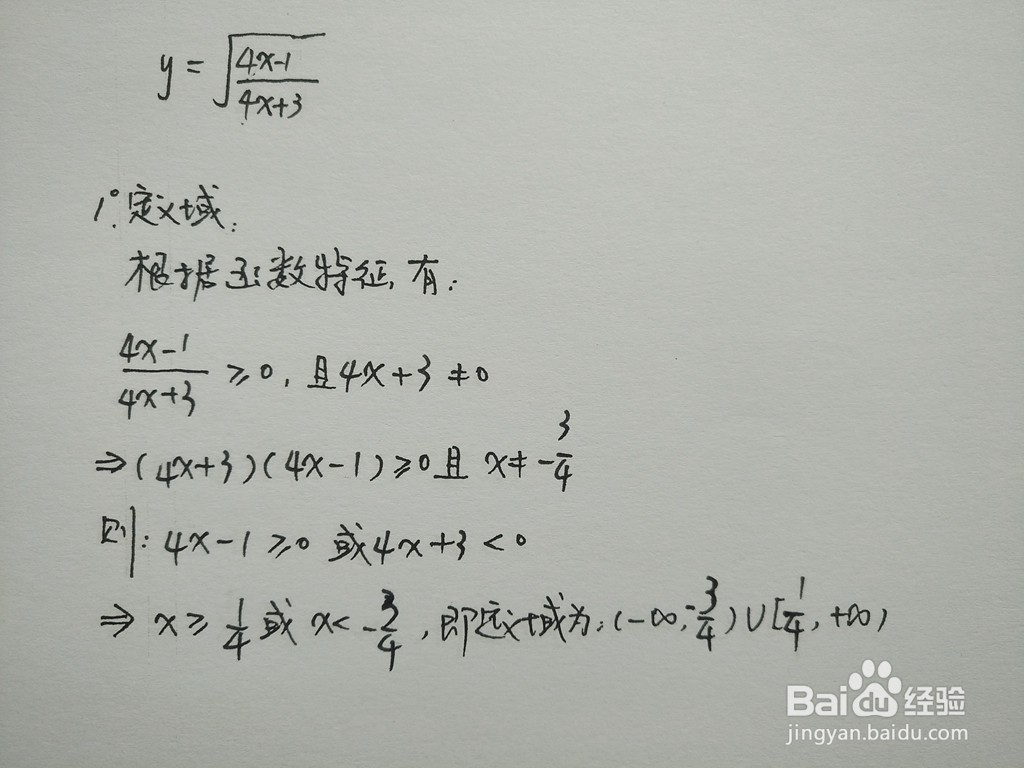 y = √((4x-1)/(4x+3))
1°. 定义域:
根据函数特征, 有:
(4x-1)/(4x+3) ≥0, 且4x+3≠0
⇒(4x+3)(4x-1)≥0且 x≠-3/4
则: 4x-1≥0 或4x+3<0
⇒ x≥1/4或 x<-3/4, 即定义域为: (-∞,-3/4)∪[1/4, +∞)
Baidu经验
jingyan.baidu.com